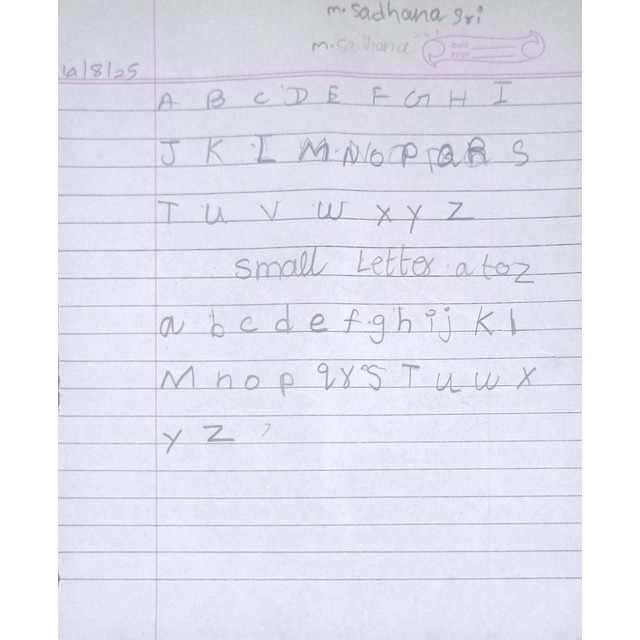 m. Sadhana Sri
m. Sadhana
Date
Page
A B C D E F G H I
J K L M N O P Q R S
T U V W X Y Z
Small Letter a to z
a b c d e f g h i j K l
M n o p q r s T u w x
y Z